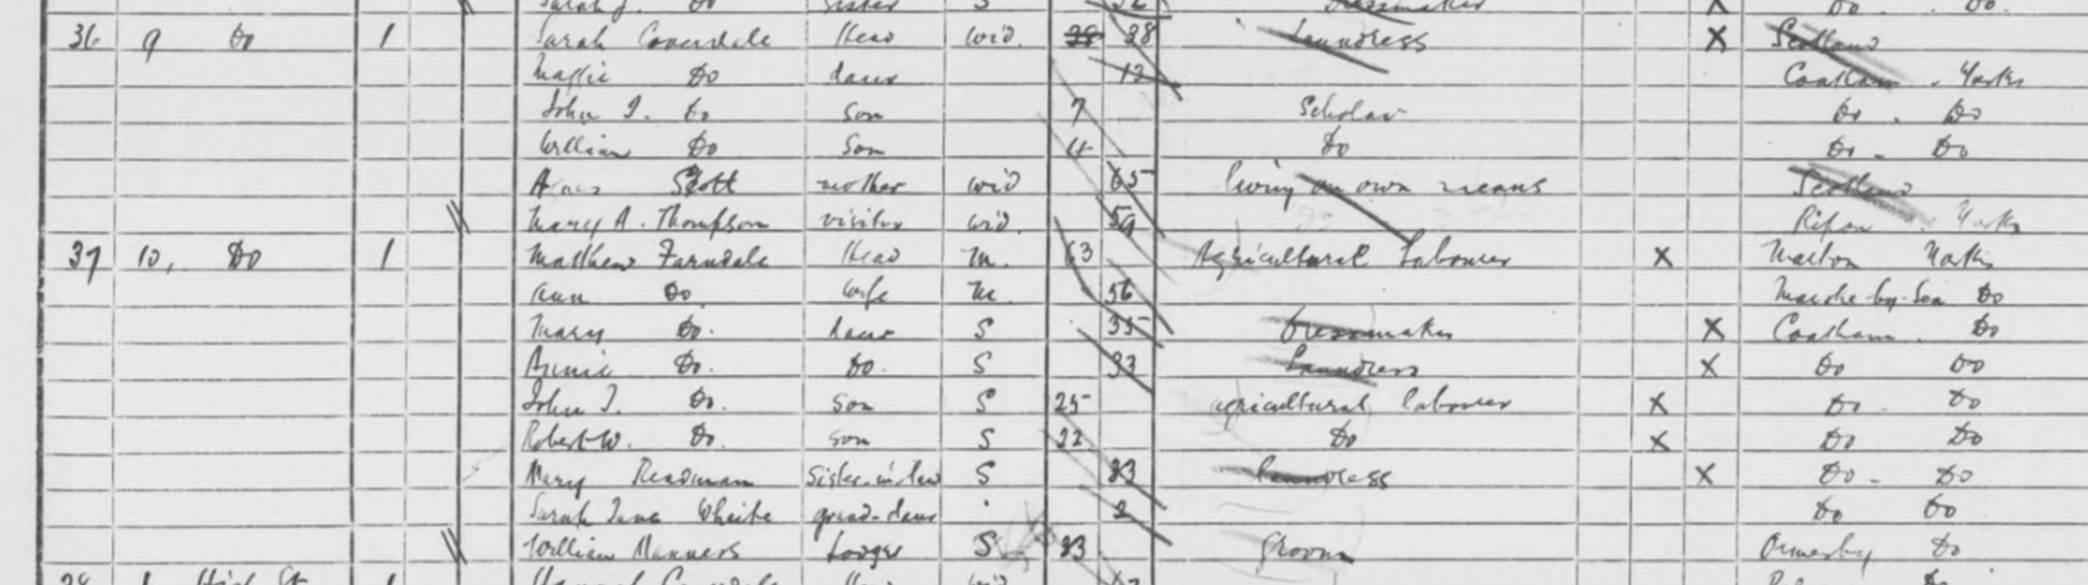 Sarah J. Do Sister S 32 Dressmaker X Do. Do.
36 9 Do 1 Sarah Coverdale Head Wid. 38 38 Laundress X Scotland
Maggie Do daur 12 Coatham. Yorks
John J. Do Son 7 Scholar Do. Do
William Do Son 4 Do Do. Do
Agnes Scott mother Wid 65 living on own means Scotland
Mary A. Thompson visitor Wid. 59 Ripon. Yorks
37 10, Do 1 Matthew Farndale Head M. 63 Agricultural Labourer X Marton Yorks
Ann Do. wife M. 56 Marske-by-Sea Do
Mary Do. daur S 35 Dressmaker X Coatham. Do
Annie Do. Do. S 33 Laundress X Do Do
John J. Do. Son S 25 agricultural labourer X Do. Do
Robert W. Do. son S 22 Do X Do Do
Mary Readman Sister-in-law S Laundress X Do. Do
Sarah Jane grand-daur 2 Do Do
William Manners Lodger S 23 Groom Ormesby Do
38 1 High St. 1 Hannah Head Wid